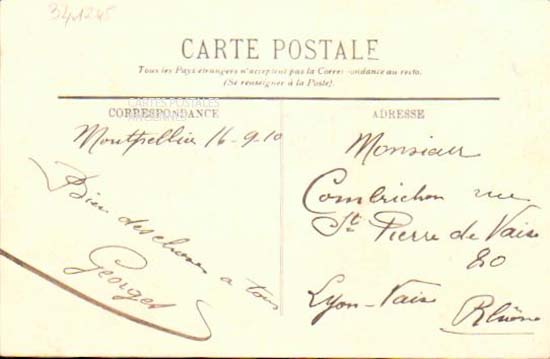 341245
CARTE POSTALE
Tous les Pays étrangers n'acceptent pas la Correspondance au recto.
(Se renseigner à la Poste).
CARTES POSTALES
ANCIENNES
CORRESPONDANCE
Montpellier 16-9-10
Bien des choses a tous
Georges
ADRESSE
Monsieur
Combrichon rue
St Pierre de Vaise
80
Lyon-Vaise
Rhône